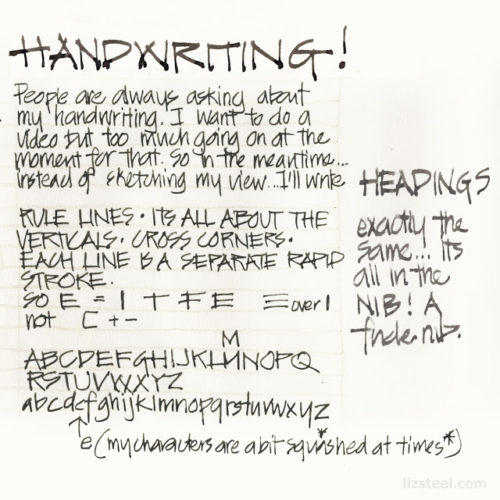 HANDWRITING!
People are always asking about
my handwriting. I want to do a
video but too much going on at the
moment for that. So in the meantime...
instead of sketching my view...I'll write
RULE LINES • ITS ALL ABOUT THE
VERTICALS • CROSS CORNERS •
EACH LINE IS A SEPARATE RAPID
STROKE.
SO E = I T F E Ξ over I
not C + -
M
ABCDEFGHIJKLMNOPQ
RSTUVWXYZ
abcdefghijklmnopqrstuvwxyz
e (my characters are a bit squished at times*)
HEADINGS
exactly the
same... its
all in the
NIB! A
nib.
lizsteel.com